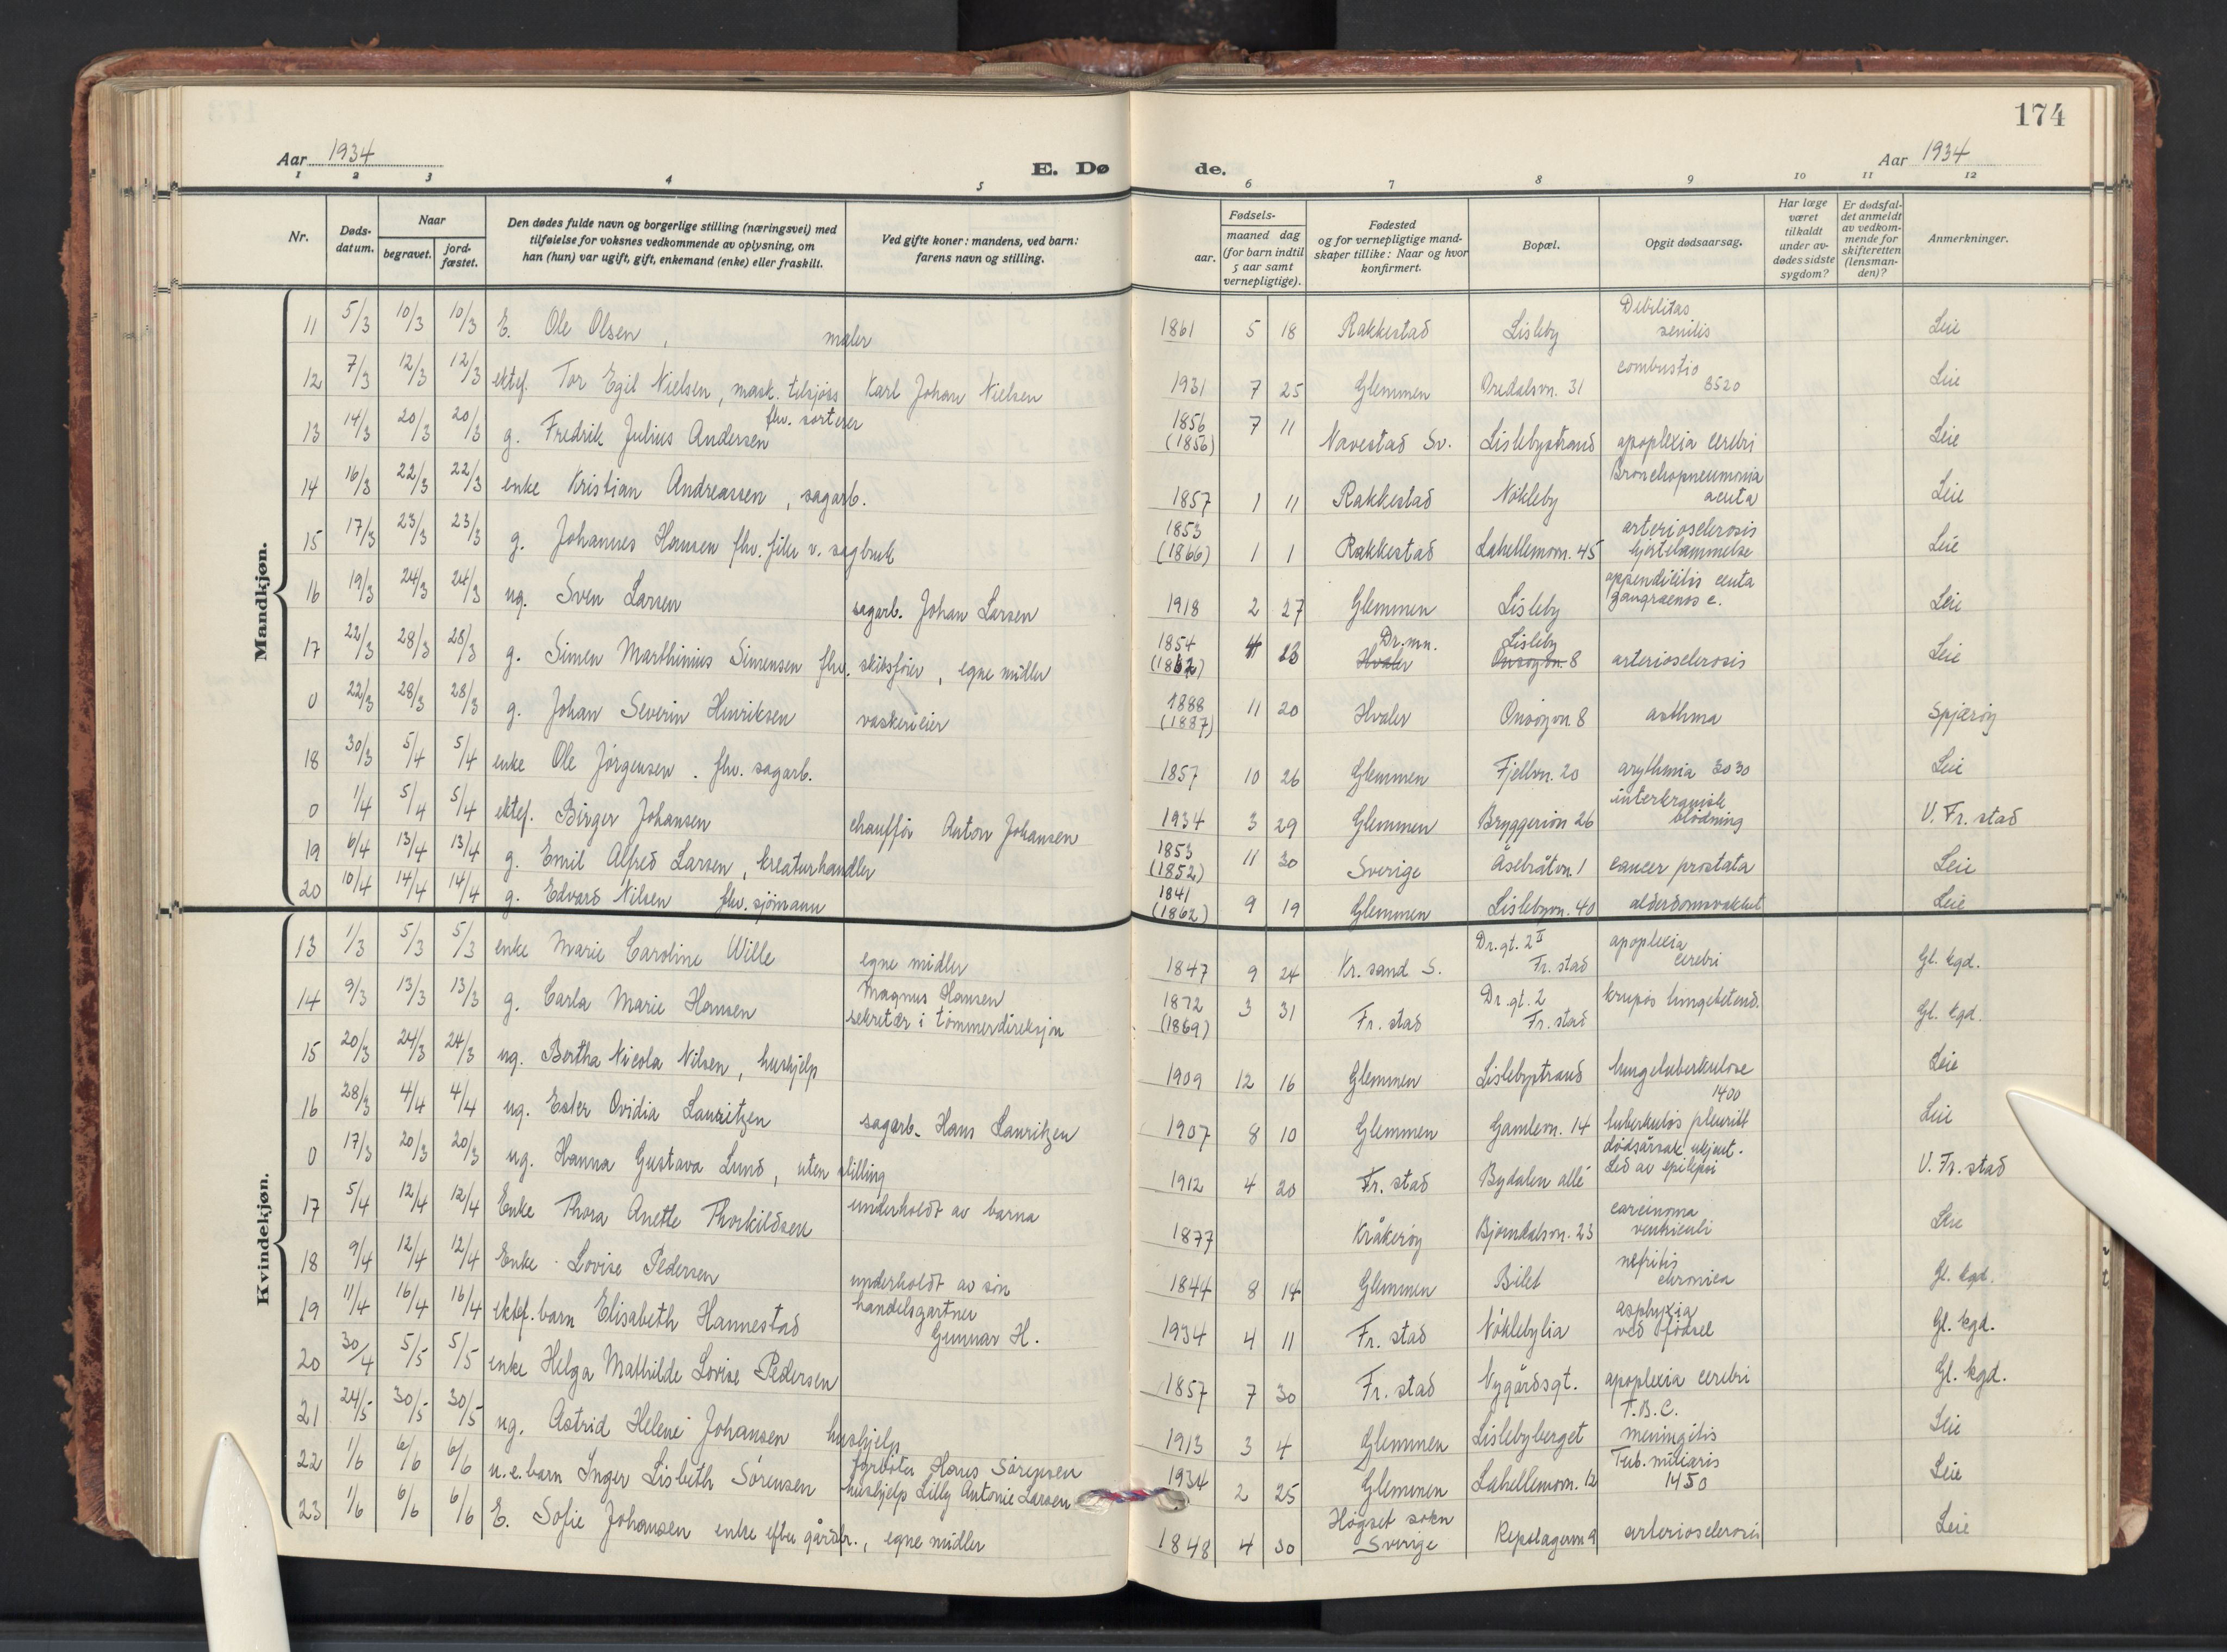 174
Aar 1934
E. Dø de.
Aar 1934
1 2 3 4 5 6 7 8 9 10 11 12
Nr.
Døds-
datum.
Naar
begravet.
jord-
fæstet.
Den dødes fulde navn og borgerlige stilling (næringsvei) med
tilføielse for voksnes vedkommende av oplysning, om
han (hun) var ugift, gift, enkemand (enke) eller fraskilt.
Ved gifte koner: mandens, ved barn:
farens navn og stilling.
Fødsels-
aar.
maaned dag
(for barn indtil
5 aar samt
vernepligtige).
Fødested
og for vernepligtige mand-
skaper tillike: Naar og hvor
konfirmert.
Bopæl.
Opgit dødsaarsag.
Har læge
været
tilkaldt
under av-
dødes sidste
sygdom?
Er dødsfal-
det anmeldt
av vedkom-
mende for
skifteretten
(lensman-
den)?
Anmerkninger.
Mandkjøn.
11 5/3 10/3 10/3 E. Ole Olsen, maler 1861 5 18 Rakkestad Lisleby Debilitas senilis Leie
12 7/3 12/3 12/3 ektef. Tor Egil Nielsen, mask. tilsjøss Karl Johan Nielsen 1931 7 25 Glemmen Oredalsvn. 31 combustio 8520 Leie
13 14/3 20/3 20/3 g. Fredrik Julius Andersen fhv. sorterer 1856 (1856) 7 11 Navestad Sv. Lislebystrand apoplexia cerebri Leie
14 16/3 22/3 22/3 enke Kristian Andreassen, sagarb. 1857 1 11 Rakkestad Nökleby Bronchopneumonia acuta Leie
15 17/3 23/3 23/3 g. Johannes Hansen fhv. filer v. sagbruk 1853 (1866) 1 1 Rakkestad Lahellemovn. 45 arteriosclerosis hjertelammelse Leie
16 19/3 24/3 24/3 ug. Sven Larsen sagarb. Johan Larsen 1918 2 27 Glemmen Lisleby appendicitis acuta gangraenos c. Leie
17 22/3 28/3 28/3 g. Simen Marthinius Simensen fhv. skibsfører, egne midler 1854 (1862) 4 23 Dr.mn. Hvaler Lisleby Onsøyvn. 8 arteriosclerosis Leie
0 22/3 28/3 28/3 g. Johan Severin Henriksen vaskerieier 1888 (1887) 11 20 Hvaler Onsøyvn 8 asthma Spjærøy
18 30/3 5/4 5/4 enke Ole Jörgensen. fhv. sagarb. 1857 10 26 Glemmen Fjellvn. 20 arythmia 3030 Leie
0 1/4 5/4 5/4 ektef. Birger Johansen chauffør Anton Johansen 1934 3 29 Glemmen Bryggerivn 26 interkranisk blödning V. Fr. stad
19 6/4 13/4 13/4 g. Emil Alfred Larsen, kreaturhandler 1853 (1852) 11 30 Sverige Åsebråtvn. 1 cancer prostata Leie
20 10/4 14/4 14/4 g. Edvard Nilsen fhv. sjömann 1841 (1862) 9 19 Glemmen Lislebyvn. 40 alderdomsvakhet Leie
Kvindekjøn.
13 1/3 5/3 5/3 enke Marie Caroline Wille egne midler 1847 9 24 Kr. sand S. Dr. gt. 2 II Fr. stad apoplexia cerebri Gl. kgd.
14 9/3 13/3 13/3 g. Carla Marie Hansen Magnus Hansen sekretær i tömmerdireksjon 1872 (1869) 3 31 Fr. stad Dr. gt. 2 Fr. stad krupös lungebetend. Gl. kgd.
15 20/3 24/3 24/3 ug. Bertha Nicola Nilsen, hushjelp 1909 12 16 Glemmen Lislebystrand lungetuberkulose 1400 Leie
16 28/3 4/4 4/4 ug. Ester Ovidia Lauritzen sagarb. Hans Lauritzen 1907 8 10 Glemmen Gamlevn. 14 tuberkulös pleuritt Leie
0 17/3 20/3 20/3 ug. Hanna Gustava Lund, uten stilling 1912 4 20 Fr. stad Bydalen allé dödsårsak ukjent. Led av epilepsi V. Fr. stad
17 5/4 12/4 12/4 Enke Thora Anette Thorkildsen underholdt av barna 1877 Kråkeröy Bjørndalsvn. 23 carcinoma ventriculi Leie
18 9/4 12/4 12/4 Enke Lovise Pedersen underholdt av sön 1844 8 14 Glemmen Bilet nefritis chronica Gl. kgd.
19 11/4 16/4 16/4 ektef. barn Elisabeth Hannestad handelsgartner Gunnar H. 1934 4 11 Fr. stad Nöklebylia asphyxia ved födsel Gl. kgd.
20 30/4 5/5 5/5 enke Helga Mathilde Lovise Pedersen 1857 7 30 Fr. stad Nygårdsgt. apoplexia cerebri Gl. kgd.
21 24/5 30/5 30/5 ug. Astrid Helene Johansen hushjelp 1913 3 4 Glemmen Lislebyberget T.B.C. meningitis Leie
22 1/6 6/6 6/6 u.e. barn Inger Lisbeth Sörensen Hans Sörensen hushjelp Lilly Antonie Larsen 1934 2 25 Glemmen Lahellemovn. 12 Tub. miliaris 1450 Leie
23 1/6 6/6 6/6 E. Sofie Johansen enke efter gårdbr., egne midler 1848 4 30 Högset sokn Sverige Repslagervn 9 arteriosclerosis Leie